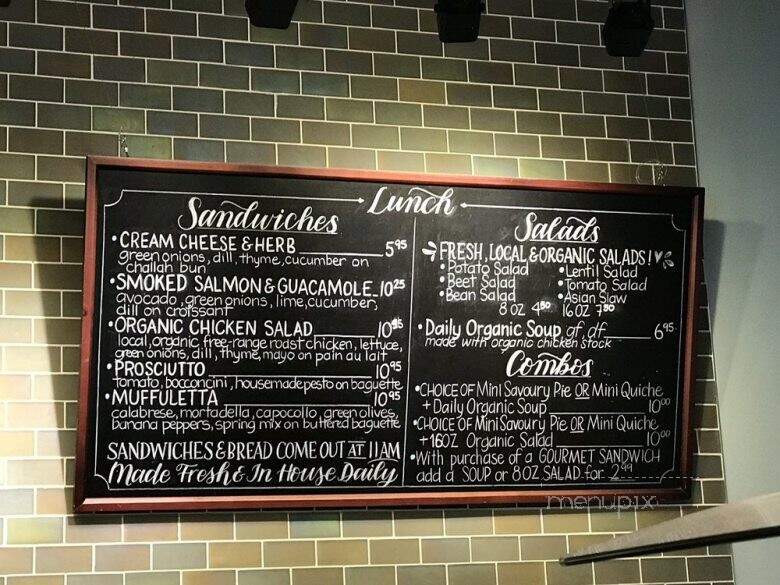 Lunch
Sandwiches
•CREAM CHEESE & HERB 5.95
green onions, dill, thyme, cucumber on
challah bun
•SMOKED SALMON & GUACAMOLE 10.25
avocado, green onions, lime, cucumber,
dill on croissant
•ORGANIC CHICKEN SALAD
local, organic, free-range roast chicken, lettuce,
green onions, dill, thyme, mayo on pain au lait
•PROSCIUTTO 10.95
tomato, bocconcini, housemade pesto on baguette
•MUFFULETTA 10.95
calabrese, mortadella, capocollo, green olives,
banana peppers, spring mix on buttered baguette
SANDWICHES & BREAD COME OUT AT 11AM
Made Fresh & In House Daily
Salads
FRESH, LOCAL & ORGANIC SALADS!
•Potato Salad •Lentil Salad
•Beet Salad •Tomato Salad
•Bean Salad •Asian Slaw
8 OZ 4.50 16 OZ 7.50
•Daily Organic Soup gf, df 6.95
made with organic chicken stock
Combos
•CHOICE OF Mini Savoury Pie OR Mini Quiche
+ Daily Organic Soup 10.00
•CHOICE OF Mini Savoury Pie OR Mini Quiche
+ 16OZ Organic Salad 10.00
•With purchase of a GOURMET SANDWICH
add a SOUP or 8OZ SALAD for 2.99
menupix